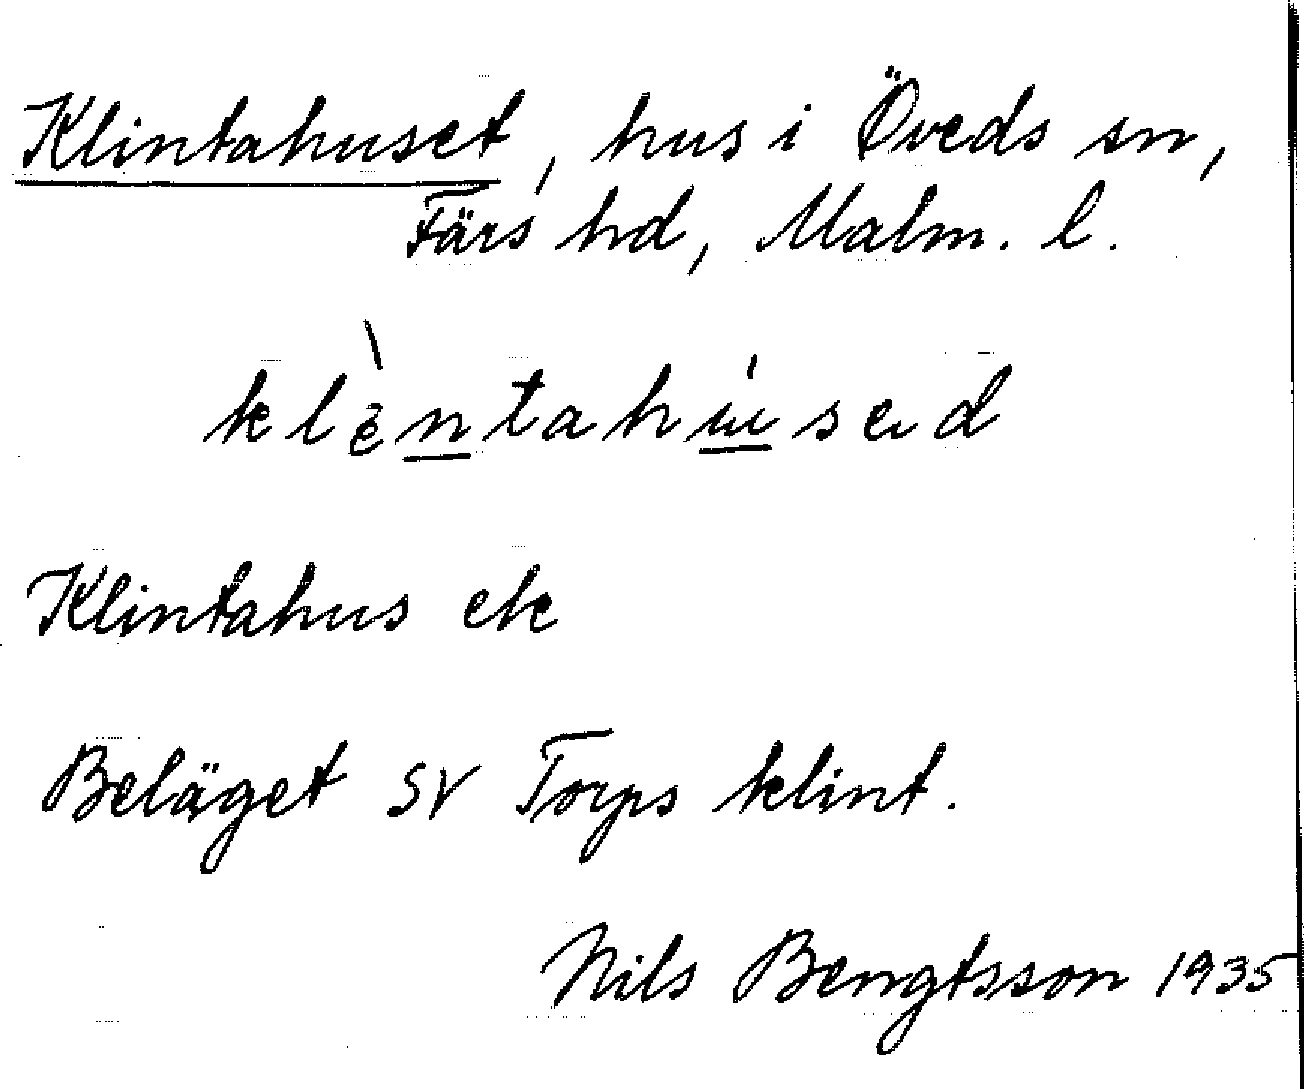 Klintahuset, hus i Öveds sn,
Färs hd, Malm. l.
Klintahus ek
Beläget SV Torps klint.
Nils Bengtsson 1935